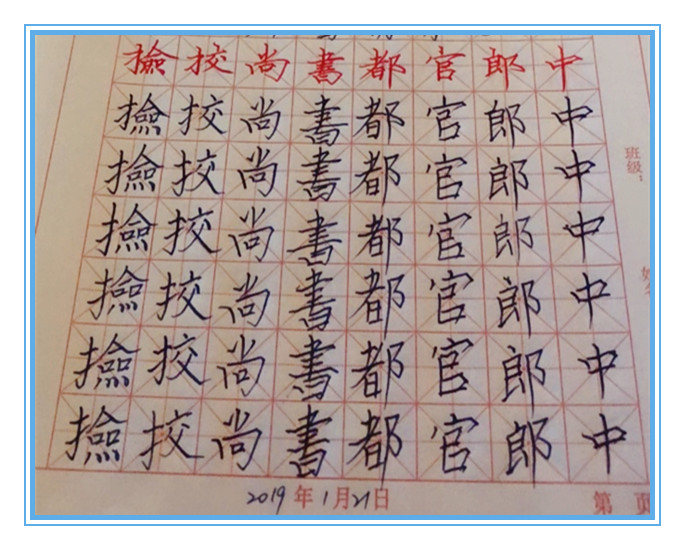 撿挍尚書都官郎中
撿挍尚書都官郎中
撿挍尚書都官郎中
撿挍尚書都官郎中
撿挍尚書都官郎中
撿挍尚書都官郎中
撿挍尚書都官郎中
班级：
2019年1月21日
第 页